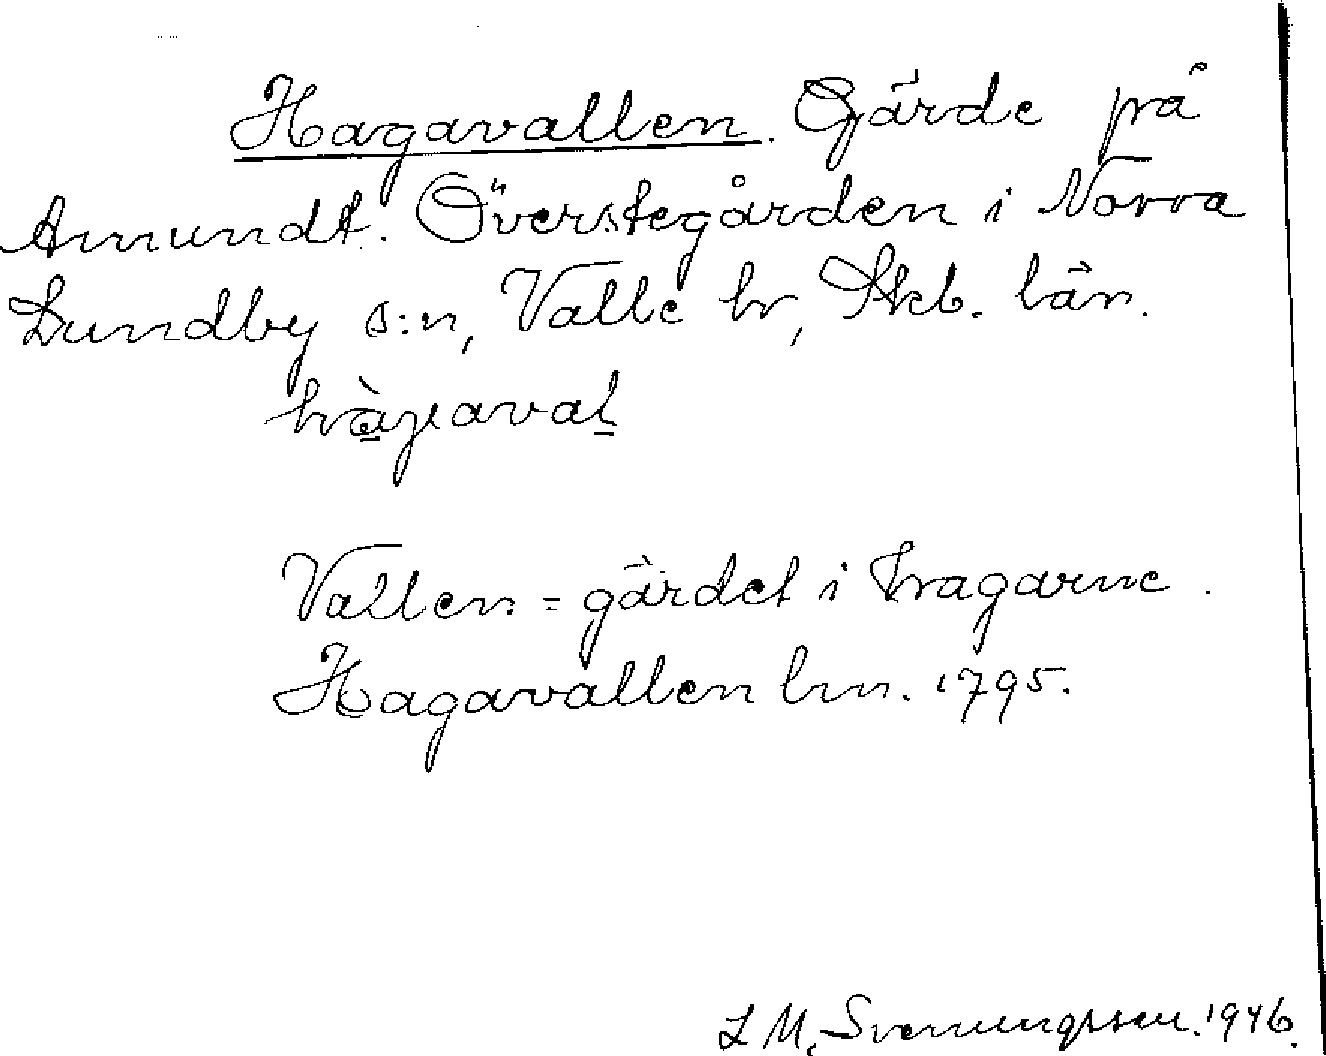 Hagavallen. Gärde på
Amundt. Överstegården i Norra
Lundby s:n, Valle hr, Skb. län.
Vallen = gärdet i hagarne.
Hagavallen lm. 1795.
L M. Svenungsson. 1946.